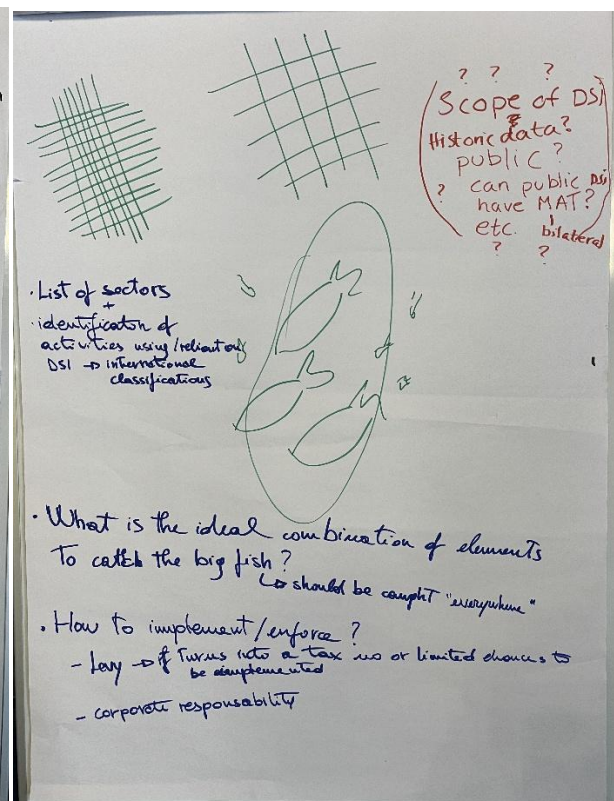 ? ? ?
Scope of DSI
&
Historic data?
public ?
? can public DSI
have MAT?
etc. bilateral
? ?
· List of sectors
+
· identification of
activities using/reliant on
DSI → international
classifications
· What is the ideal combination of elements
To catch the big fish ?
↳ should be caught "everywhere"
· How to implement/enforce ?
- Levy → if Turns into a tax no or limited chances to
be implemented
- corporate responsability